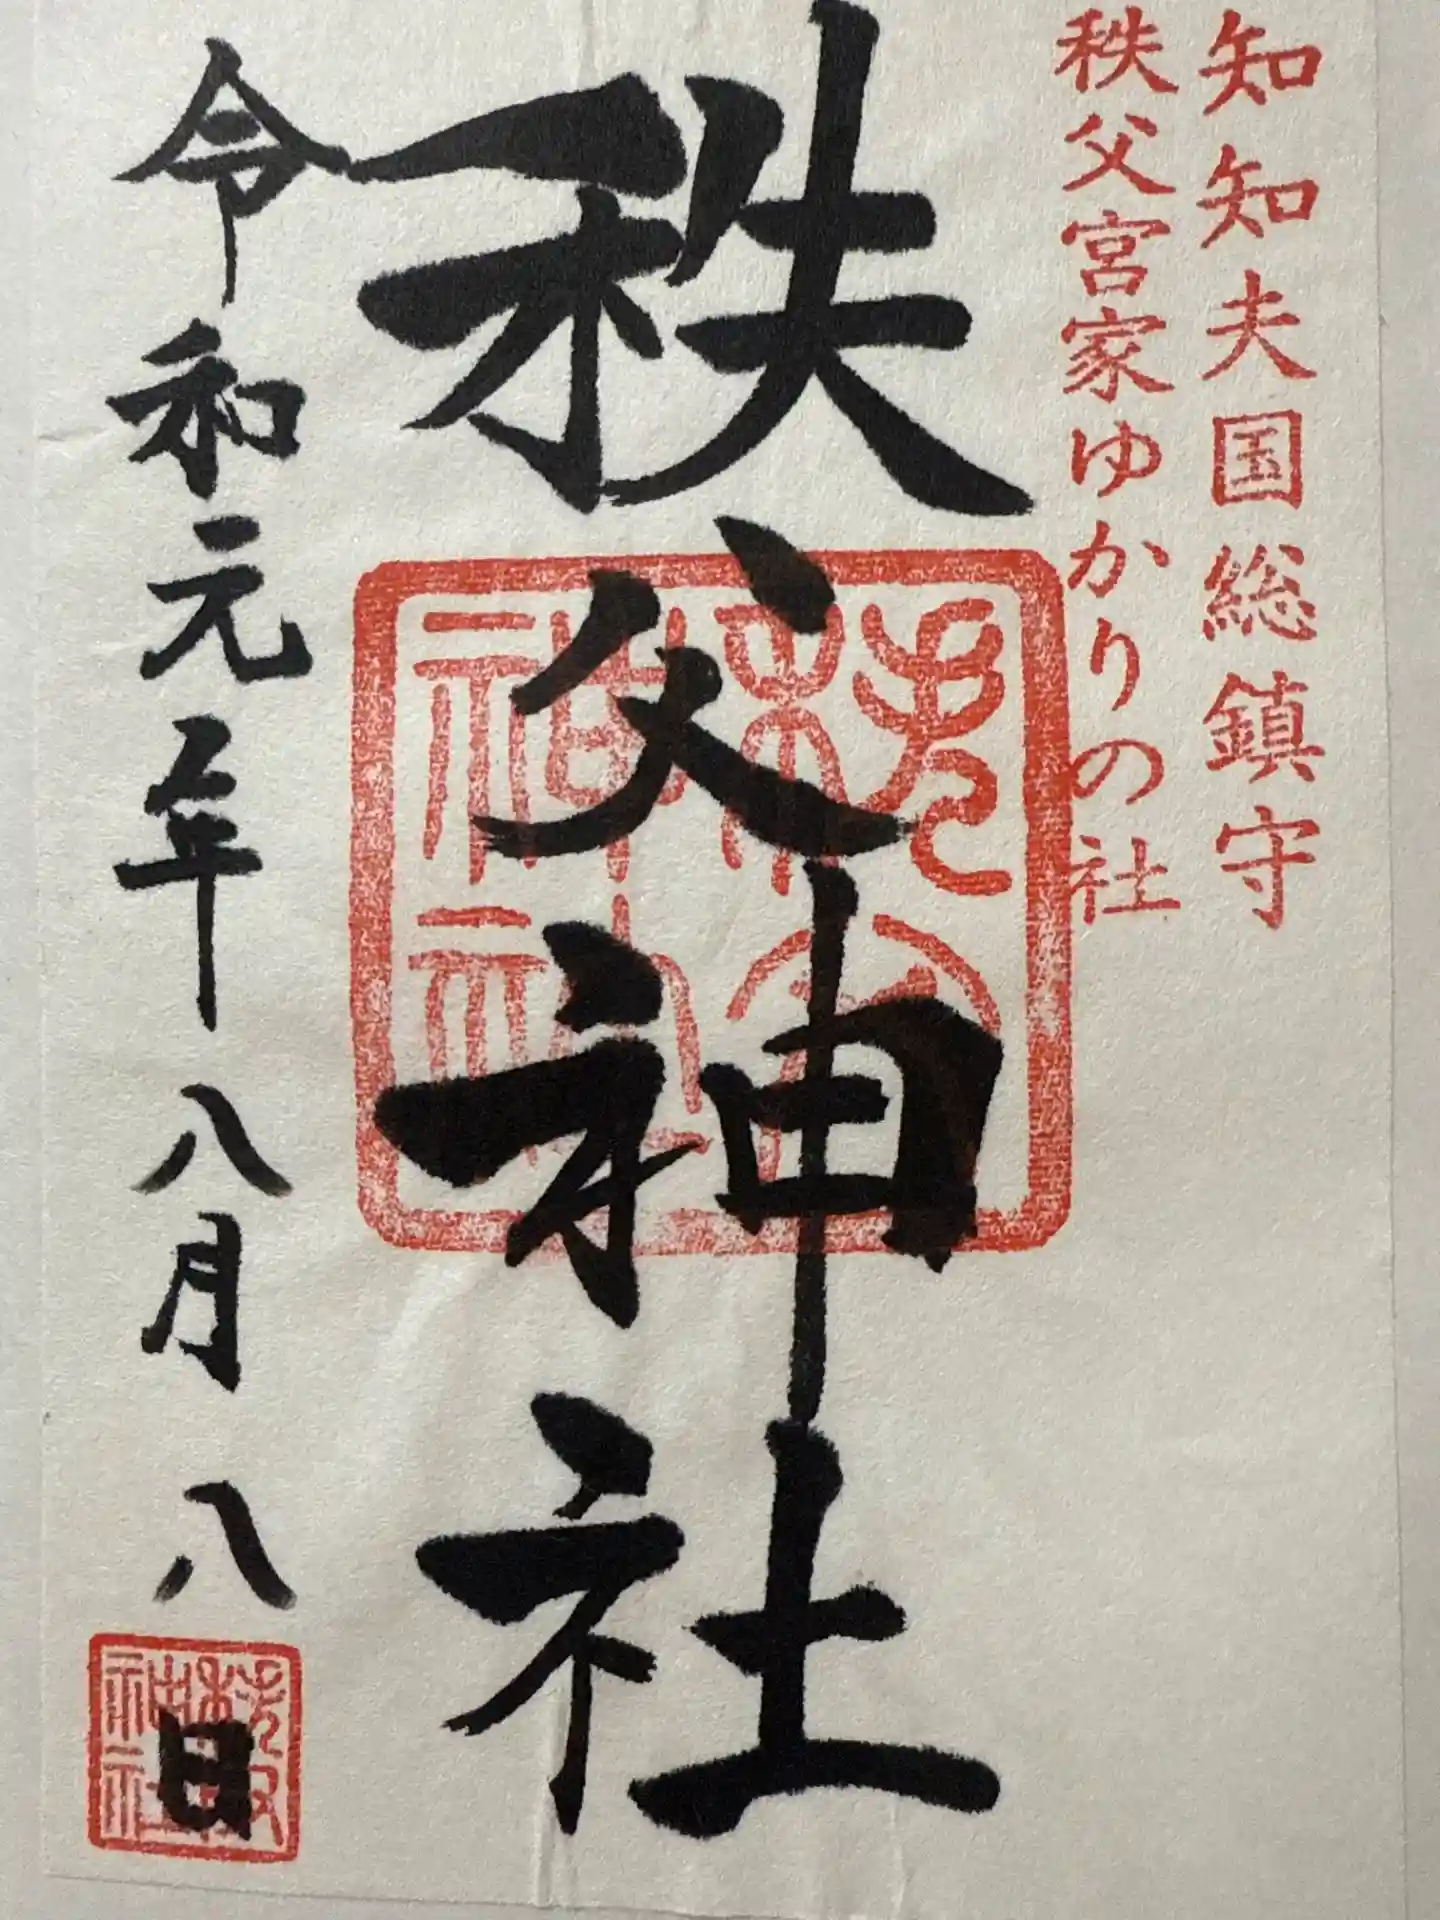 知知夫国総鎮守
秩父宮家ゆかりの社
秩父神社
令和元年八月八日
秩父神社
秩父神社